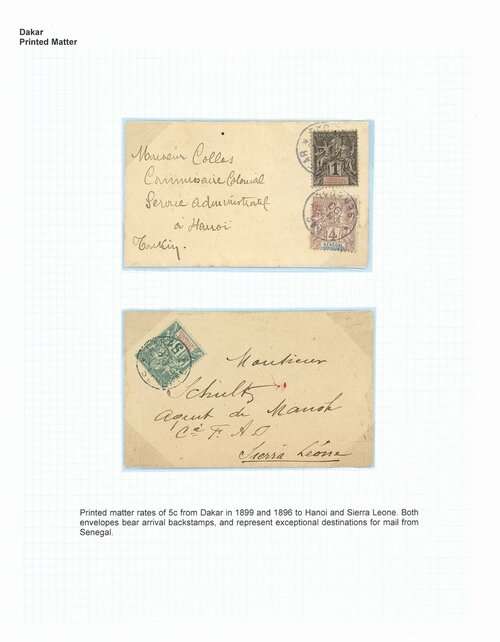 Dakar
Printed Matter
Monsieur Collas
Commissaire Colonial
Service Administratif
à Hanoï
Tonkin
1
4
5
Monsieur
Schultz
Agent de
Cie F. A O
Sierra Léone
Printed matter rates of 5c from Dakar in 1899 and 1896 to Hanoi and Sierra Leone. Both
envelopes bear arrival backstamps, and represent exceptional destinations for mail from
Senegal.